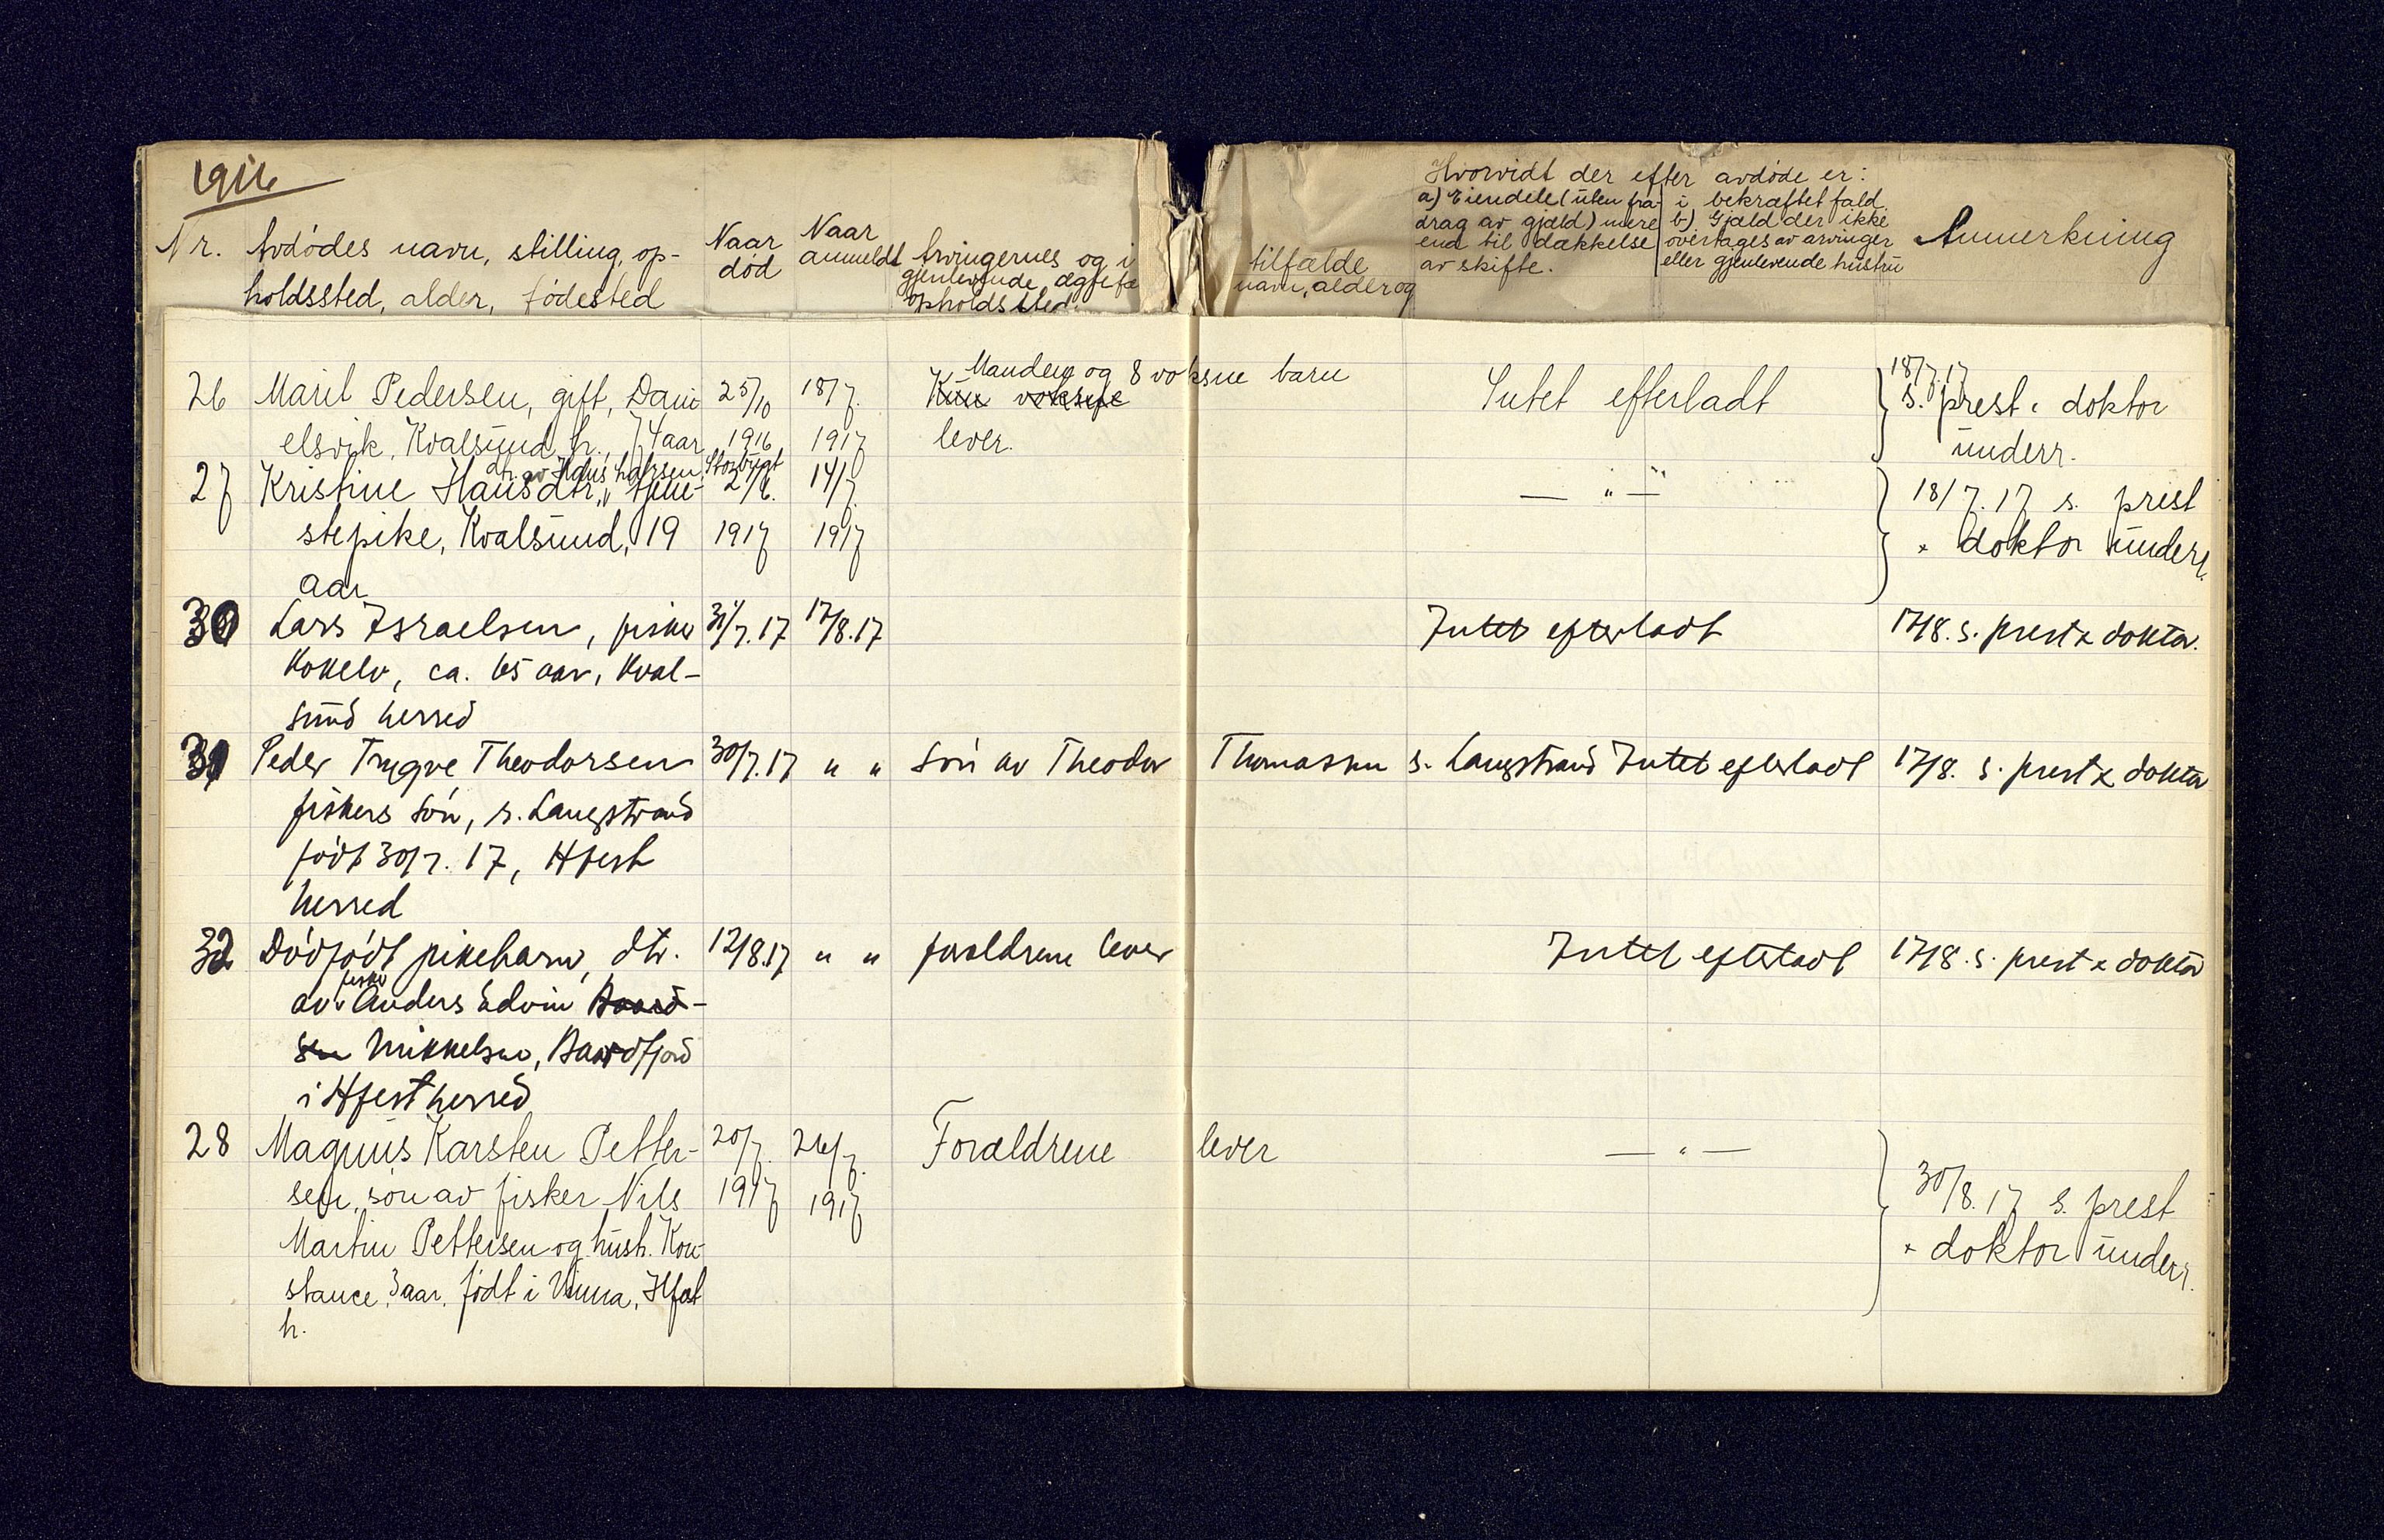 1916
Nr. Avdødes navn, stilling, op-
holdssted, alder, fødested
Naar
død
Naar
anmeldt
Arvingernes og i
gjenlevende ægtefæ
opholdssted.
tilfælde
navn, alder og
Hvorvidt der efter avdøde er:
a) Eiendele (uten fra-
drag av gjæld) mere
end til dækkelse
av skifte.
i bekræftet fald
b) Gjæld der ikke
overtages av arvinger
eller gjenlevende hustru
Anmerkning
26 Marit Pedersen, gift, Dani 25/10 18/7. Manden og 8 voksne barn Intet efterladt 18/7.17
elsvik, Kvalsund h., 74 aar 1916 1917 Kun voksne s. prest & doktor
lever. underr.
dtr. av Hans Larsen, Storbugt
27 Kristine Hansdtr., tjene- 2/6. 14/7 — " — 18/7.17 s. prest
stepike, Kvalsund, 19 1917 1917 & doktor underr.
aar
30 Lars Israelsen, fisker 31/7.17 17/8.17 Intet efterladt 17/8. s. prest & doktor.
Kokelv, ca. 65 aar, Kval-
sund herred
31 Peder Trygve Theodorsen 30/7.17 " " søn av Theodor Thomassen s. Langstrand Intet efterladt 17/8. s. prest & doktor
fiskers søn, s. Langstrand
født 30/7. 17, Hfest
herred
32 Dødfødt pikebarn, dtr. 12/8.17 " " forældrene lever Intet efterladt 17/8. s. prest & doktor
fisker
av Anders Edvin Baard-
sen Mikkelsen, Baardfjord
i Hfest herred
28 Magnus Karsten Petter- 20/7. 26/7. Forældrene lever — " —
sen, søn av fisker Nils 1917 1917 30/8.17 s. prest
Martin Pettersen og hustr. Kon- & doktor underr.
stance, 3 aar, født i Vinna, Hfest
h.